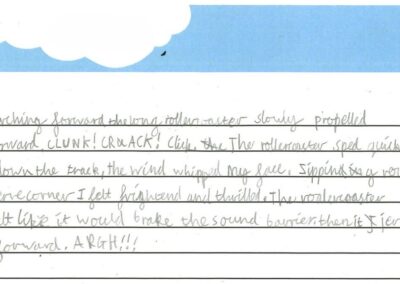 rching forward the long rollercoaster slowly propelled
orward, CLUNK! CRUACK! Click, the The rollercoaster sped quick
down the track, the wind whipped my face. Sippind
corner I felt frightend and thrilled. The roolercoaster
lt like it would brake the sound barrier then it
forward. ARGH!!!